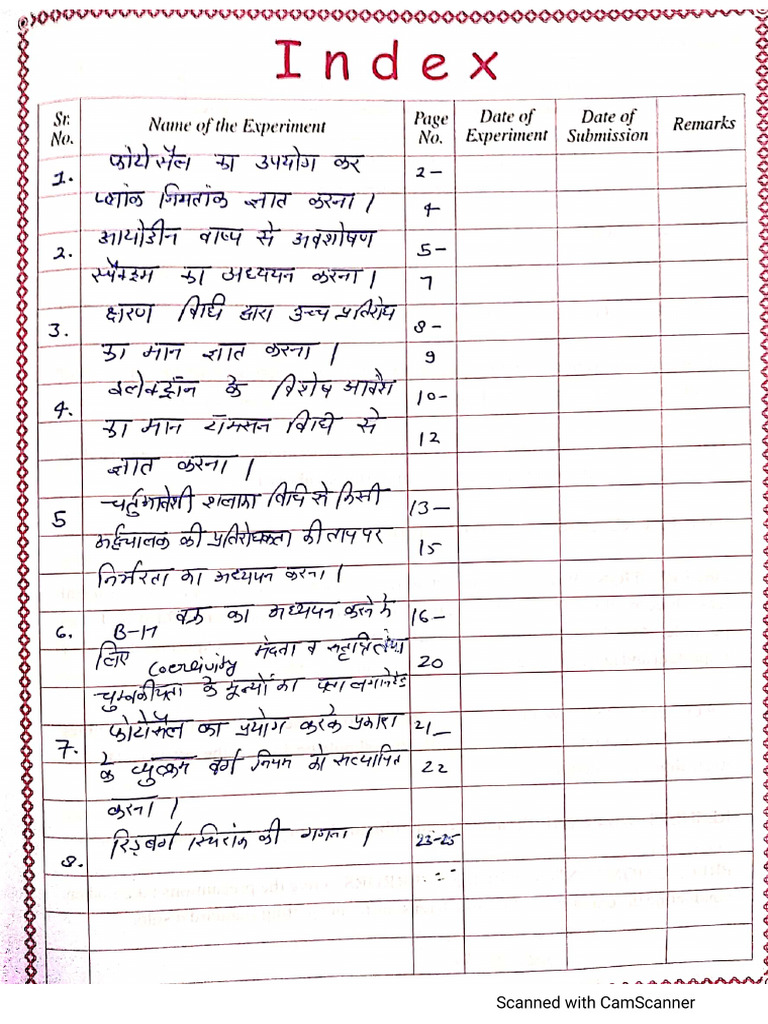 Index
Sr. No. Name of the Experiment Page No. Date of Experiment Date of Submission Remarks
1. फोटोसैल का उपयोग कर 2-
प्लांक नियतांक ज्ञात करना । 4
2. आयोडीन वाष्प से अवशोषण 5-
स्पैक्ट्रम का अध्ययन करना । 7
3. क्षरण विधि द्वारा उच्च प्रतिरोध 8-
का मान ज्ञात करना । 9
4. इलेक्ट्रॉन के विशेष आवेश 10-
का मान थॉमसन विधि से 12
ज्ञात करना ।
5 शलाका विधि से किसी 13-
अर्द्धचालक की प्रतिरोधकता की ताप पर 15
निर्भरता का अध्ययन करना ।
6. B-H वक्र का अध्ययन करने के 16-
लिए coercivity व 20
चुम्बकीयता के मूल्यों का पता
7. फोटोसैल का प्रयोग करके प्रकाश 21-
के व्युत्क्रम वर्ग नियम को सत्यापित 22
करना ।
8. रिड्बर्ग स्थिरांक की गणना । 23-25
Scanned with CamScanner